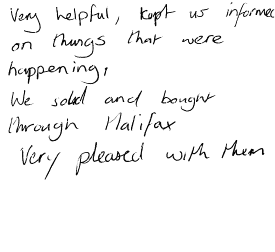 Very helpful, kept us informed
on things that were
happening,
We sold and bought
through Halifax
Very pleased with them